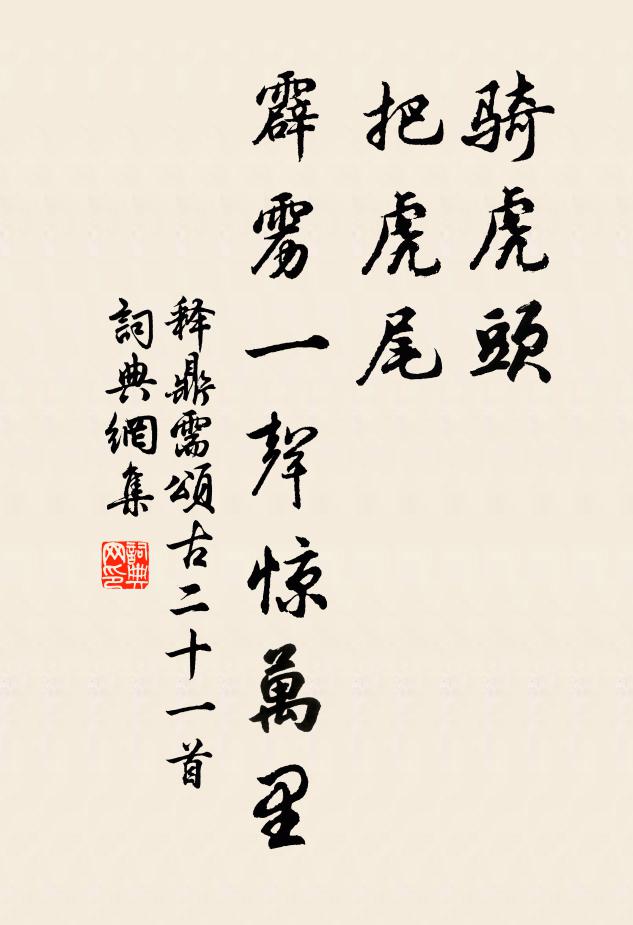 騎虎頭
把虎尾
霹雳一聲惊萬里
释鼎需頌古二十一首
詞典網集
詞典网印